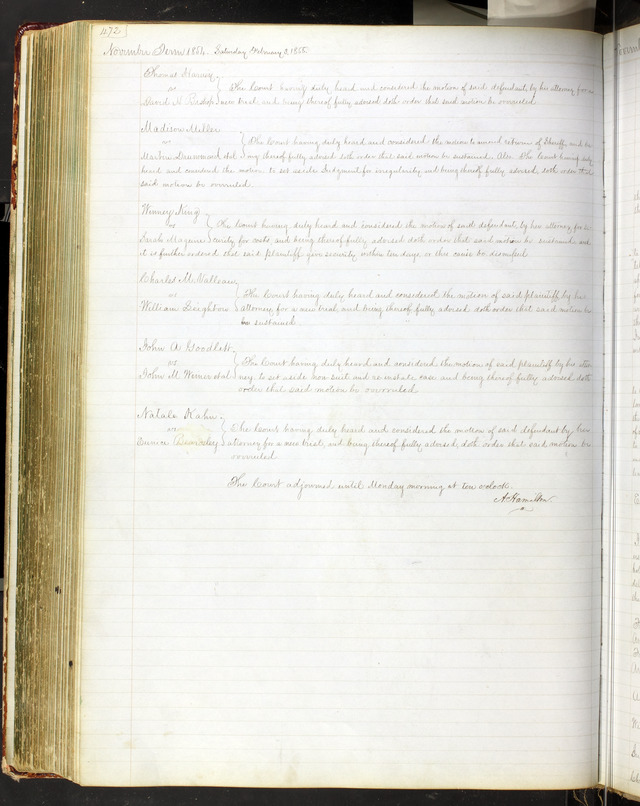 472
November Term 1854. Saturday February 3, 1855
Thomas Harney
vs
The Court having duly heard and considered the motion of said defendant, by his attorney for a
David H. Bishop new trial, and being thereof fully advised doth order that said motion be overruled
Madison Miller
vs
The Court having duly heard and considered the motion to amend return of Sheriff, and be
Martin et al ing thereof fully advised doth order that said motion be sustained. Also. The Court having duly
heard and considered the motion to set aside Judgment for irregularity and being thereof fully advised, doth order that
said motion be overruled.
Winney King
vs
The Court having duly heard and considered the motion of said defendant, by her attorney for se
Maguire curity for costs, and being thereof fully advised doth order that said motion be sustained and
it is further ordered that said plaintiff give security within ten days or this cause be dismissed
Charles M. Valleau
vs
The Court having duly heard and considered the motion of said plaintiff by his
William Leighton attorney for a new trial, and being thereof fully advised doth order that said motion be
sustained
John A Goodlett
vs
The Court having duly heard and considered the motion of said plaintiff by his attor
John M. Wimer et al ney to set aside non suit and re instate case and being thereof fully advised doth
order that said motion be overruled
Natale Kahn
vs
The Court having duly heard and considered the motion of said defendant by her
Eunice attorney for a new trial, and being thereof fully advised, doth order that said motion be
overruled
The Court adjourned until Monday morning at ten o'clock.
A Hamilton